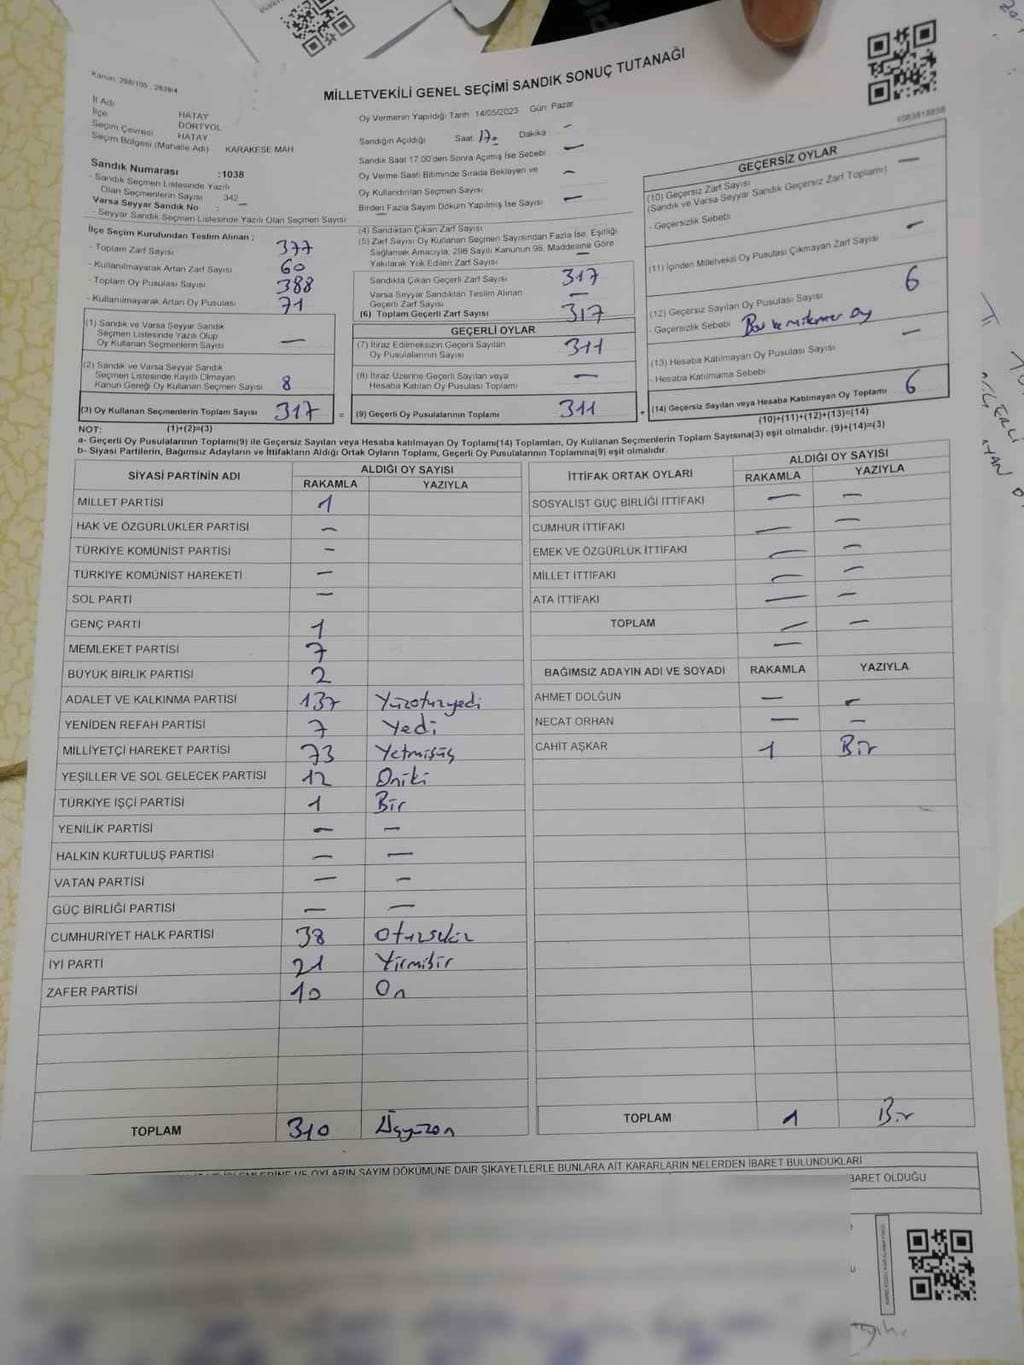 Kanun: 298/105 , 2839/4
MİLLETVEKİLİ GENEL SEÇİMİ SANDIK SONUÇ TUTANAĞI
1083818858
İl Adı HATAY
İlçe DÖRTYOL
Seçim Çevresi HATAY
Seçim Bölgesi (Mahalle Adı) KARAKESE MAH
Sandık Numarası :1038
- Sandık Seçmen Listesinde Yazılı
Olan Seçmenlerin Sayısı 342
Varsa Seyyar Sandık No : –
- Seyyar Sandık Seçmen Listesinde Yazılı Olan Seçmen Sayısı
Oy Vermenin Yapıldığı Tarih 14/05/2023 Gün Pazar
Sandığın Açıldığı Saat Dakika –
Sandık Saat 17:00'den Sonra Açılmış İse Sebebi –
Oy Verme Saati Bitiminde Sırada Bekleyen ve –
Oy Kullandırılan Seçmen Sayısı
Birden Fazla Sayım Döküm Yapılmış İse Sayısı –
İlçe Seçim Kurulundan Teslim Alınan :
- Toplam Zarf Sayısı 377
- Kullanılmayarak Artan Zarf Sayısı 60
- Toplam Oy Pusulası Sayısı 388
- Kullanılmayarak Artan Oy Pusulası 71
(1) Sandık ve Varsa Seyyar Sandık
Seçmen Listesinde Yazılı Olup
Oy Kullanan Seçmenlerin Sayısı –
(2) Sandık ve Varsa Seyyar Sandık
Seçmen Listesinde Kayıtlı Olmayan
Kanun Gereği Oy Kullanan Seçmen Sayısı 8
(3) Oy Kullanan Seçmenlerin Toplam Sayısı 317 =
(1)+(2)=(3)
(4) Sandıktan Çıkan Zarf Sayısı
(5) Zarf Sayısı Oy Kullanan Seçmen Sayısından Fazla İse, Eşitliği
Sağlamak Amacıyla, 298 Sayılı Kanunun 98. Maddesine Göre
Yakılarak Yok Edilen Zarf Sayısı –
Sandıkta Çıkan Geçerli Zarf Sayısı 317
Varsa Seyyar Sandıktan Teslim Alınan
Geçerli Zarf Sayısı –
(6) Toplam Geçerli Zarf Sayısı 317
GEÇERLİ OYLAR
(7) İtiraz Edilmeksizin Geçerli Sayılan
Oy Pusulalarının Sayısı 311
(8) İtiraz Üzerine Geçerli Sayılan veya
Hesaba Katılan Oy Pusulası Toplamı –
(9) Geçerli Oy Pusulalarının Toplamı 311 +
GEÇERSİZ OYLAR
(10) Geçersiz Zarf Sayısı –
(Sandık ve Varsa Seyyar Sandık Geçersiz Zarf Toplamı)
- Geçersizlik Sebebi
(11) İçinden Milletvekili Oy Pusulası Çıkmayan Zarf Sayısı –
(12) Geçersiz Sayılan Oy Pusulası Sayısı 6
- Geçersizlik Sebebi oy
(13) Hesaba Katılmayan Oy Pusulası Sayısı –
- Hesaba Katılmama Sebebi
(14) Geçersiz Sayılan veya Hesaba Katılmayan Oy Toplamı 6
(10)+(11)+(12)+(13)=(14)
NOT:
a- Geçerli Oy Pusulalarının Toplamı(9) ile Geçersiz Sayılan veya Hesaba katılmayan Oy Toplamı(14) Toplamları, Oy Kullanan Seçmenlerin Toplam Sayısına(3) eşit olmalıdır. (9)+(14)=(3)
b- Siyasi Partilerin, Bağımsız Adayların ve İttifakların Aldığı Ortak Oyların Toplamı, Geçerli Oy Pusulalarının Toplamına(9) eşit olmalıdır.
SİYASİ PARTİNİN ADI ALDIĞI OY SAYISI
RAKAMLA YAZIYLA
MİLLET PARTİSİ 1
HAK VE ÖZGÜRLÜKLER PARTİSİ –
TÜRKİYE KOMÜNİST PARTİSİ –
TÜRKİYE KOMÜNİST HAREKETİ –
SOL PARTİ –
GENÇ PARTİ 1
MEMLEKET PARTİSİ 7
BÜYÜK BİRLİK PARTİSİ 2
ADALET VE KALKINMA PARTİSİ 137 Yüzotuzyedi
YENİDEN REFAH PARTİSİ 7 Yedi
MİLLİYETÇİ HAREKET PARTİSİ 73 Yetmişüç
YEŞİLLER VE SOL GELECEK PARTİSİ 12 Oniki
TÜRKİYE İŞÇİ PARTİSİ 1 Bir
YENİLİK PARTİSİ – –
HALKIN KURTULUŞ PARTİSİ – –
VATAN PARTİSİ – –
GÜÇ BİRLİĞİ PARTİSİ – –
CUMHURİYET HALK PARTİSİ 38 Otuzsekiz
İYİ PARTİ 21 Yirmibir
ZAFER PARTİSİ 10 On
TOPLAM 310 Üçyüzon
İTTİFAK ORTAK OYLARI ALDIĞI OY SAYISI
RAKAMLA YAZIYLA
SOSYALİST GÜÇ BİRLİĞİ İTTİFAKI – –
CUMHUR İTTİFAKI – –
EMEK VE ÖZGÜRLÜK İTTİFAKI – –
MİLLET İTTİFAKI – –
ATA İTTİFAKI – –
TOPLAM – –
–
BAĞIMSIZ ADAYIN ADI VE SOYADI RAKAMLA YAZIYLA
AHMET DOLĞUN – –
NECAT ORHAN – –
CAHİT AŞKAR 1 Bir
TOPLAM 1 Bir
OYLARIN SAYIM DÖKÜMÜNE DAİR ŞİKAYETLERLE BUNLARA AİT KARARLARIN NELERDEN İBARET BULUNDUKLARI
BARET OLDUĞU